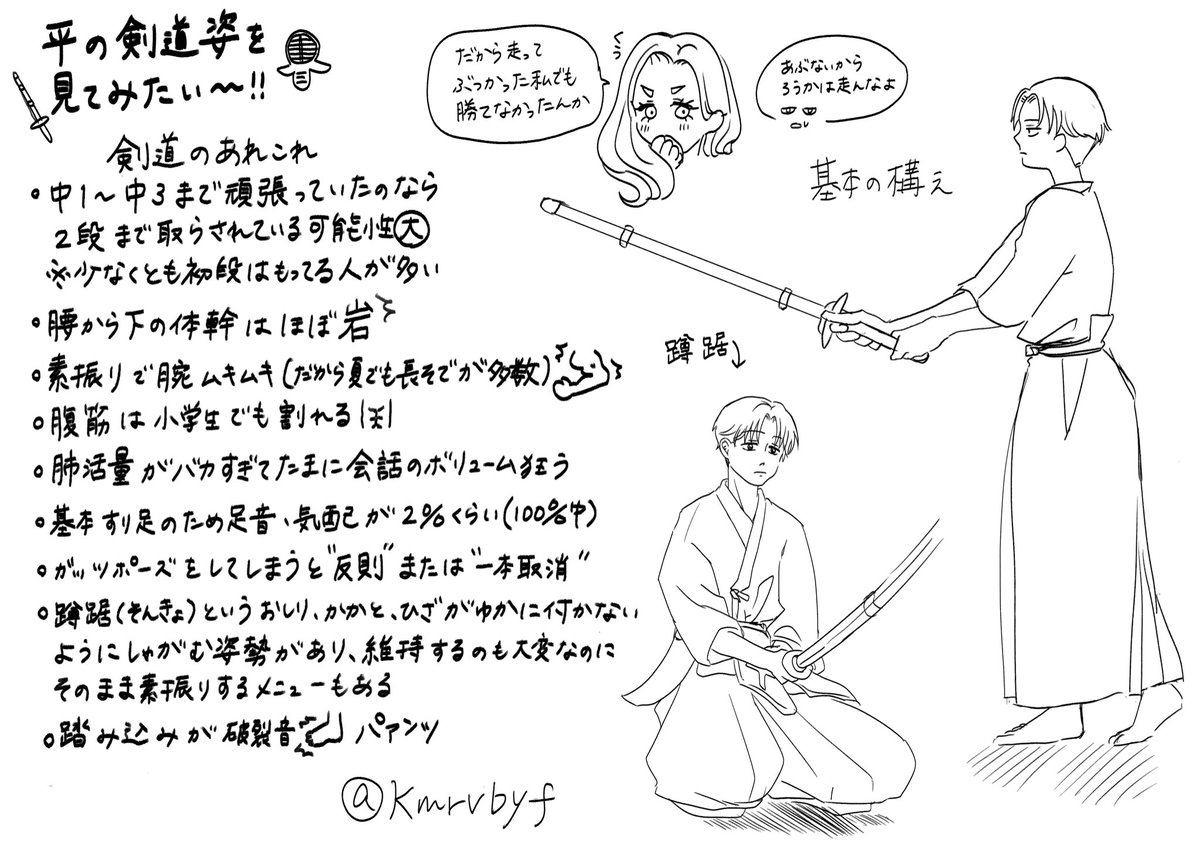 平の剣道姿を
見てみたい〜!!
剣道のあれこれ
・中1〜中3まで頑張っていたのなら
2段まで取らされている可能性大
※少なくとも初段はもってる人が多い
・腰から下の体幹はほぼ岩
・素振りで腕ムキムキ(だから夏でも長そでが多数)
・腹筋は小学生でも割れる(笑)
・肺活量がバカすぎてたまに会話のボリューム狂う
・基本すり足のため足音、気配が2%くらい(100%中)
・ガッツポーズをしてしまうと"反則"または"一本取消"
・蹲踞(そんきょ)というおしり、かかと、ひざがゆかに付かない
ようにしゃがむ姿勢があり、維持するのも大変なのに
そのまま素振りするメニューもある
・踏み込みが破裂音 パァンッ
@kmrvbyf
だから走って
ぶつかった私でも
勝てなかったんか
くぅ
あぶないから
ろうかは走んなよ
基本の構え
蹲踞↓